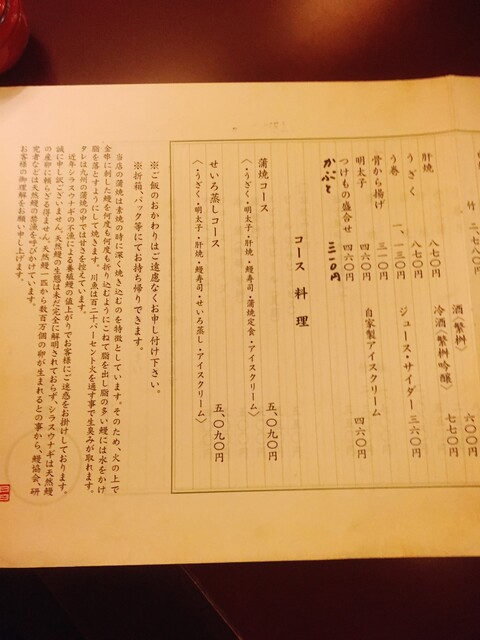 竹 二、七八〇円
肝焼 八七〇円
うざく 八七〇円
う巻 一、一三〇円
骨から揚げ 三一〇円
明太子 四六〇円
つけもの盛合せ 四六〇円
かぶと 三一〇円
酒〈繁桝〉 六〇〇円
冷酒〈繁桝吟醸〉 七七〇円
ジュース・サイダー 三六〇円
自家製アイスクリーム 四六〇円
コース料理
蒲焼コース 五、〇九〇円
〈・うざく・明太子・肝焼・鰻寿司・蒲焼定食・アイスクリーム〉
せいろ蒸しコース 五、〇九〇円
〈・うざく・明太子・肝焼・鰻寿司・せいろ蒸し・アイスクリーム〉
※ご飯のおかわりはご遠慮なくお申し付け下さい。
※折箱、パック等にてお持ち帰りできます。
当店の蒲焼は素焼の時に深く焼き込むのを特徴としています。そのため、火の上で
金串に刺した鰻を何度も何度も折り込むようにこねて脂を出し脂の多い鰻には水をかけ
脂を落とすようにして焼きます。川魚は百二十パーセント火を通す事で生臭みが取れます。
タレは九州の蒲焼の中では甘さを控えています。
近年シラスウナギの不漁による養殖鰻の値上がりでお客様にご迷惑をお掛けしております。
誠に申し訳ございません。天然鰻の生態は未だ完全に解明されておらず、シラスウナギは天然鰻
の産卵に頼らざる得ません。天然鰻一匹から数百万個の卵が生まれるとの事から、鰻協会、研
究者などは天然鰻の禁漁を呼びかけています。
お客様の御理解をお願い申し上げます。